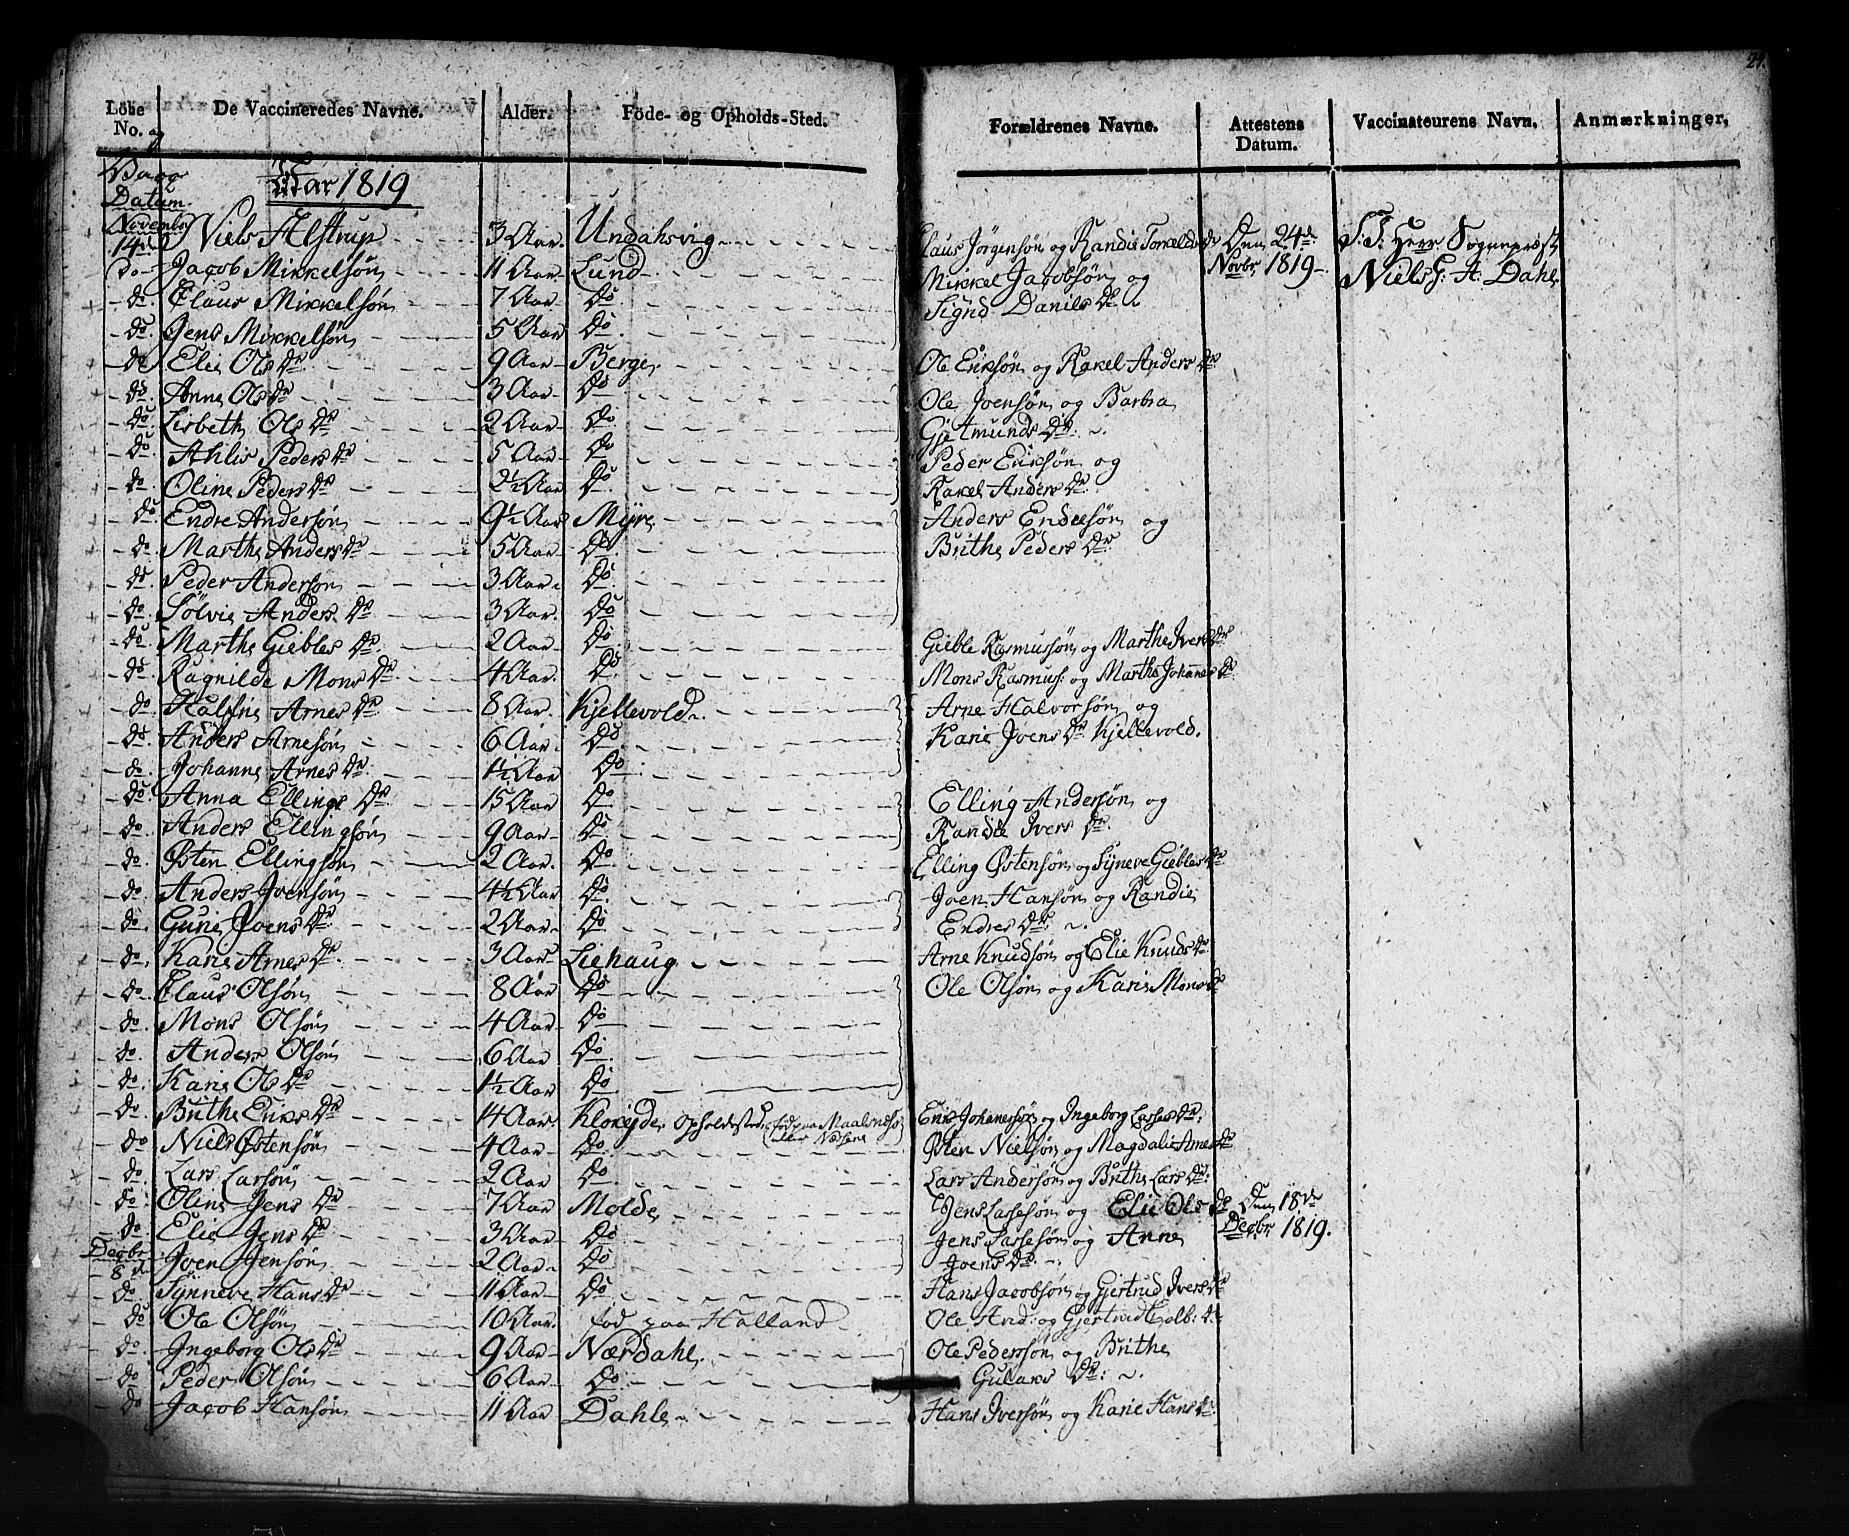 24.
Löbe No. De Vaccineredes Navne. Alder. Föde- og Opholds-Sted. Forældrenes Navne. Attestens Datum. Vaccinateurens Navn. Anmærkninger.
og
Datum. Aar 1819
Novembr 14de Niels Alstrup 3 Aar. Undahsvig Claus Jörgensön og Randi Den 24de S: T: Herr Sogneprest
do Jacob Mikkelsön 11 Aar. Lund Mikkel Jacobsön og Novbr 1819 Niels G: A: Dahl
do Claus Mikkelsön 7 Aar. Do Signd Daniels Dr
do. Jens Mikkelsön 5 Aar Do
do Elie Ols Dr 9 Aar Berge Ole Eriksön og Rakel Anders Dr
do Anne Ols Dr 3 Aar Do Ole Joensön og Barbra
do. Lisbeth Ols Dr 2 Aar Do Gjetmunds Dr:
do. Ahlis Peders Dr 5 Aar Do Peder Eriksön og
do. Oline Peders Dr 2½ Aar Do. Rakel Anders Dr.
do. Endre Andersön 9½ Aar Myre Anders Endresön og
do. Marthe Anders Dr 5 Aar Do. Brithe Peders Dr.
do Peder Andersön 3 Aar. Do.
do. Sölvie Anders Dr 3 Aar. Do
do Marthe Giebles Dr. 2 Aar Do. Gieble Rasmussön og Marthe Ivers Dr
do. Ragnilde Mons Dr. 4 Aar. Do. Mons Rasmus: og Marthe Johannes Dr.
do. Halfne Arnes Dr. 8 Aar. Kjellevold Arne Halvorsön og
do. Anders Arnesön 6 Aar. Do. Karie Joens Dr Kjellevold.
do. Johanne Arnes Dr. 1½ Aar Do
do. Anna Ellings Dr. 15 Aar Do Elling Andersön og
do. Anders Ellingsön 9 Aar. Do. Randie Ivers Dr.
do. Østen Ellingsön 2 Aar. Do Elling Østensön og Syneve Giebles Dr
do Anders Joensön 4½ Aar Do. Joen Hansön og Randie
do. Gurie Joens Dr. 2 Aar Do Endres Dr.
do. Karie Arnes Dr. 3 Aar Liehaug Arne Knudsön og Elie Knuds Dr.
do Claus Olsön 8 Aar Do Ole Olsön og Karie Mons Dr
do. Mons Olsön 4 Aar Do
do. Anders Olsön 6 Aar Do.
do. Karie Ols Dr 1½ Aar Do
do Brithe Eriks Dr 14 Aar. Klokeyde Opholdested föd paa Erik Johanesön og Ingeborg Larses Dr.
do Niels Østensön 4 Aar Do. Østen Nielsön og Magdalie Arnes Dr
do. Lars Larsön 2 Aar Do. Lars Andersön og Brithe Lars Dr:
do. Oline Jens Dr 7 Aar Molde Jens Larsesön og Elie Ols Dr Den 18de
do Elie Jens Dr 3 Aar Do Jens Larsesön og Anne Decbr 1819.
Decbr 8de Joen Jensön 2 Aar Do Joens Dr.
do. Synneve Hans Dr 11 Aar Do Hans Jacobsön og Gjertrud Ivers Dr
do Ole Olsön 10 Aar. föd paa Halland Ole And: og Gjertrud
do. Ingeborg Ols Dr 9 Aar Nærdahl. Ole Pedersön og Brithe
do. Peder Olsön 6 Aar Do. Gulaks Dr:
do Jacob Hansön 11 Aar Dahle Hans Iversön og Karie Hans Dr.